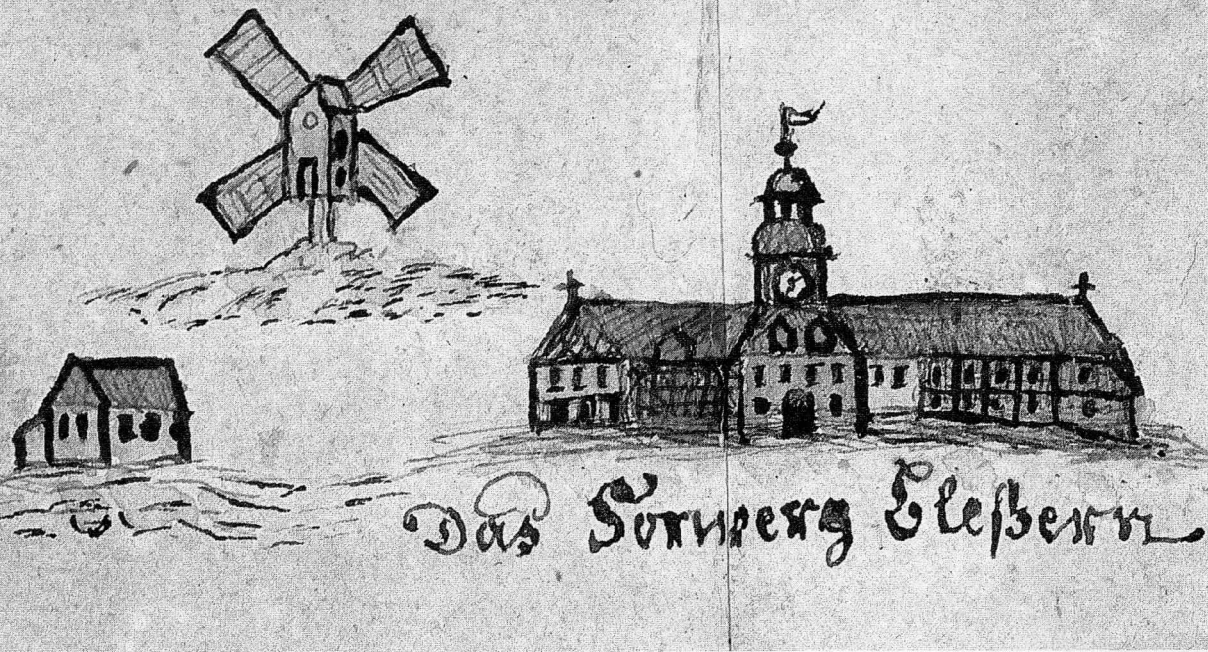 Das Forwerg Bleßern